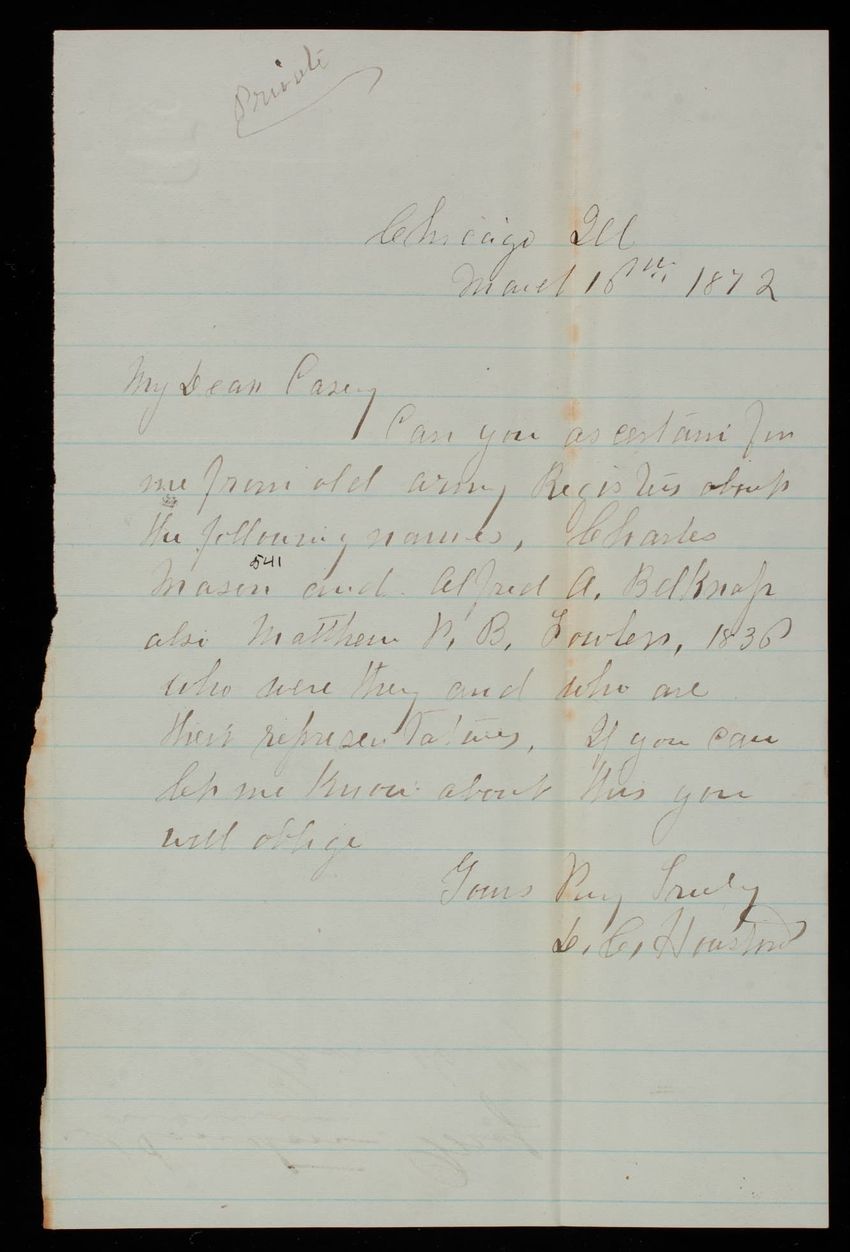 Private
Chicago Ill
March 16th 1872
My Dear Casey
Can you ascertain for
me from old army Registers about
the following names, Charles
541
Mason and Alfred A. Belknap
also Matthew V. B. Fowler, 1836
who were they and who are
their representatives, If you can
let me know about this you
will oblige
Yours Very Truly
D. C. Houston